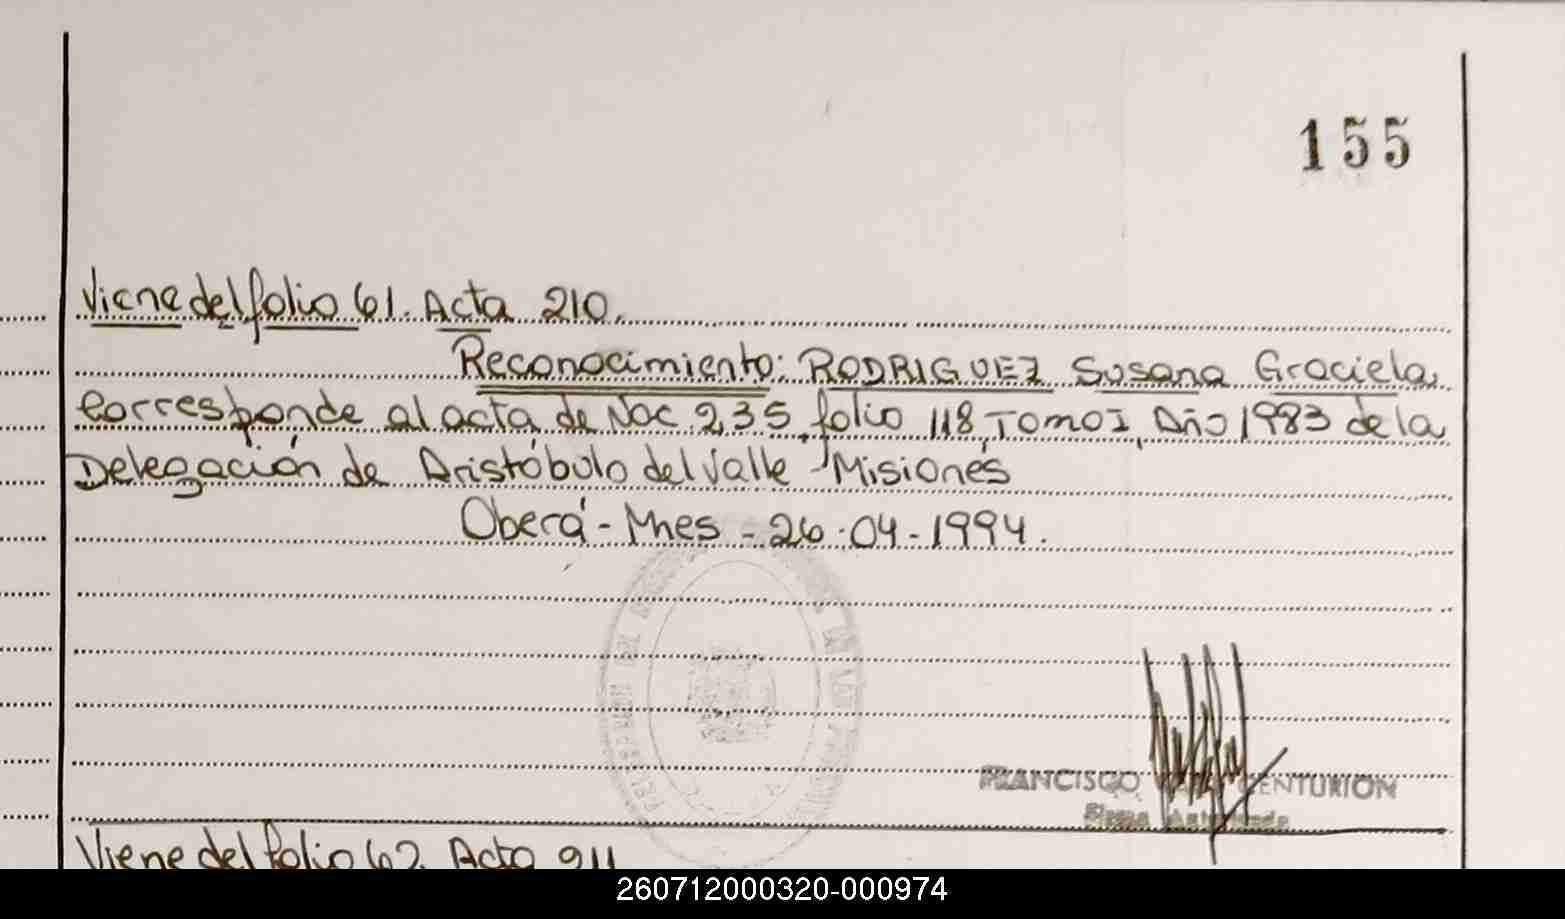 155
Viene del folio 61. Acta 210.
Reconocimiento: RODRIGUEZ Susana Graciela
Corresponde al acta de Nac. 235, folio 118, Tomo I, Año 1983 de la
Delegación de Aristóbulo del Valle - Misiones
Oberá - Mnes - 26-04-1994.
FRANCISCO CENTURION
Firma Autorizada
Viene del folio 62. Acta 211
260712000320-000974